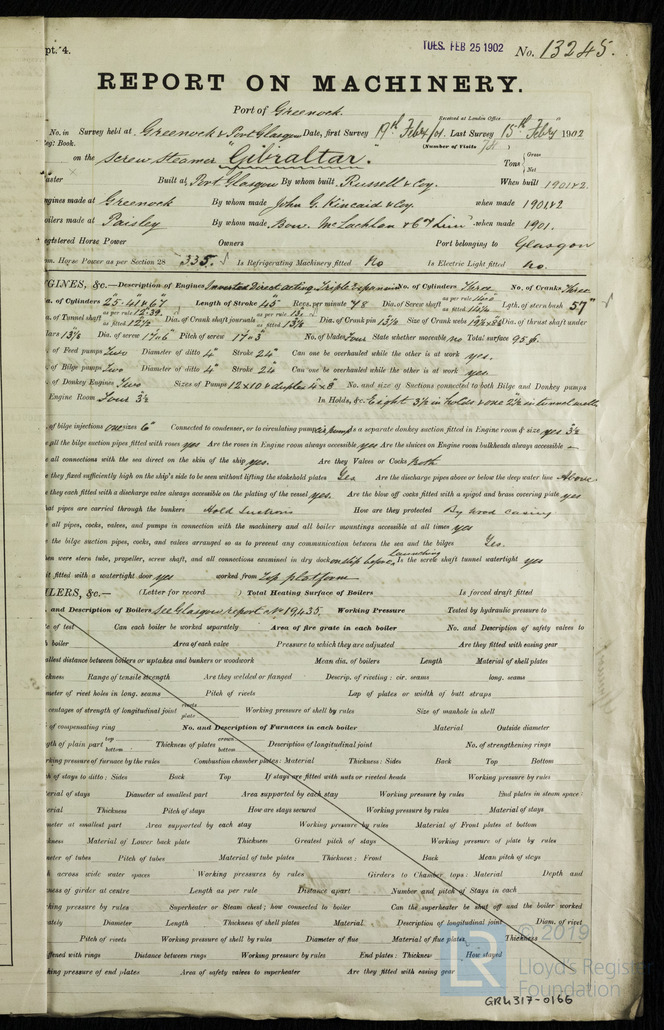 pt. 4.
TUES. FEB 25 1902
No. 13245.
REPORT ON MACHINERY.
Port of Greenock.
Received at London Office
No. in Survey held at Greenock & Port Glasgow Date, first Survey 19th Feby/01. Last Survey 15th Feby 1902
Reg. Book.
(Number of Visits
on the Screw Steamer "Gibraltar."
Tons { Gross
Net
Built at Port Glasgow By whom built Russell & Coy. When built 1901&2
ngines made at Greenock By whom made John G. Kincaid & Coy. when made 1901&2
oilers made at Paisley By whom made Bow. McLachlan & Co Lim when made 1901.
egistered Horse Power Owners Port belonging to Glasgow
om. Horse Power as per Section 28 335. Is Refrigerating Machinery fitted No Is Electric Light fitted no.
GINES, &c.—Description of Engines Inverted Direct acting Triple Expansion No. of Cylinders Three No. of Cranks Three
a. of Cylinders 25-41&67 Length of Stroke 45" Revs. per minute 78 Dia. of Screw shaft as per rule as fitted Lgth. of stern bush 57"
. of Tunnel shaft as per rule 12.39 as fitted 12½ Dia. of Crank shaft journals as per rule as fitted 13⅛ Dia. of Crank pin Size of Crank webs Dia. of thrust shaft under
llars 13⅛ Dia. of screw 17.6 Pitch of screw 17.3 No. of blades Four State whether moveable no Total surface 95 ft.
of Feed pumps Two Diameter of ditto 4" Stroke 24" Can one be overhauled while the other is at work yes.
of Bilge pumps Two Diameter of ditto 4" Stroke 24" Can one be overhauled while the other is at work yes.
of Donkey Engines Two Sizes of Pumps 12x10 & duplex No. and size of Suctions connected to both Bilge and Donkey pumps
Engine Room Four 3½ In Holds, &c. Eight 3½ in holds & one 2½ in tunnel well
of bilge injections one sizes 6" Connected to condenser, or to circulating pump Is a separate donkey suction fitted in Engine room & size yes 3½
all the bilge suction pipes fitted with roses yes Are the roses in Engine room always accessible yes Are the sluices on Engine room bulkheads always accessible —
all connections with the sea direct on the skin of the ship yes. Are they Valves or Cocks both
e they fixed sufficiently high on the ship's side to be seen without lifting the stokehold plates Yes Are the discharge pipes above or below the deep water line Above
e they each fitted with a discharge valve always accessible on the plating of the vessel yes. Are the blow off cocks fitted with a spigot and brass covering plate yes
at pipes are carried through the bunkers Hold Suctions How are they protected By wood casing
all pipes, cocks, valves, and pumps in connection with the machinery and all boiler mountings accessible at all times yes
e the bilge suction pipes, cocks, and valves arranged so as to prevent any communication between the sea and the bilges Yes.
en were stern tube, propeller, screw shaft, and all connections examined in dry dock on slip before launching Is the screw shaft tunnel watertight yes
it fitted with a watertight door yes worked from Top platform
LERS, &c.— (Letter for record ) Total Heating Surface of Boilers Is forced draft fitted
and Description of Boilers See Glasgow report No 19435 Working Pressure Tested by hydraulic pressure to
te of test Can each boiler be worked separately Area of fire grate in each boiler No. and Description of safety valves to
h boiler Area of each valve Pressure to which they are adjusted Are they fitted with easing gear
allest distance between boilers or uptakes and bunkers or woodwork Mean dia. of boilers Length Material of shell plates
ckness Range of tensile strength Are they welded or flanged Descrip. of riveting : cir. seams long. seams
meter of rivet holes in long. seams Pitch of rivets Lap of plates or width of butt straps
centages of strength of longitudinal joint rivets plate Working pressure of shell by rules Size of manhole in shell
of compensating ring No. and Description of Furnaces in each boiler Material Outside diameter
gth of plain part top bottom Thickness of plates crown bottom Description of longitudinal joint No. of strengthening rings
rking pressure of furnace by the rules Combustion chamber plates : Material Thickness : Sides Back Top Bottom
h of stays to ditto : Sides Back Top If stays are fitted with nuts or riveted heads Working pressure by rules
erial of stays Diameter at smallest part Area supported by each stay Working pressure by rules End plates in steam space :
erial Thickness Pitch of stays How are stays secured Working pressure by rules Material of stays
meter at smallest part Area supported by each stay Working pressure by rules Material of Front plates at bottom
ckness Material of Lower back plate Thickness Greatest pitch of stays Working pressure of plate by rules
meter of tubes Pitch of tubes Material of tube plates Thickness : Front Back Mean pitch of stays
h across wide water spaces Working pressures by rules Girders to Chamber tops : Material Depth and
kness of girder at centre Length as per rule Distance apart Number and pitch of Stays in each
king pressure by rules Superheater or Steam chest ; how connected to boiler Can the superheater be shut off and the boiler worked
ately Diameter Length Thickness of shell plates Material Description of longitudinal joint Diam. of rivet
Pitch of rivets Working pressure of shell by rules Diameter of flue Material of flue plates Thickness
ffened with rings Distance between rings Working pressure by rules End plates : Thickness How stayed
king pressure of end plates Area of safety valves to superheater Are they fitted with easing gear
© 2019
LR
Lloyd's Register
Foundation
GRK317-0166